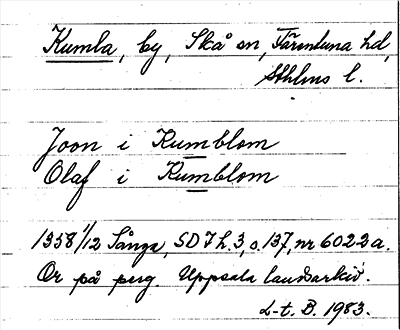 Kumla, by, Skå sn, Färentuna hd,
Sthlms l.
Joon i Kumblom
Olaf i Kumblom
1358 1/12 Sånga, SD 7 h. 3, s. 137, nr 6022a.
Or på perg. Uppsala landsarkiv.
L-t. B. 1983.